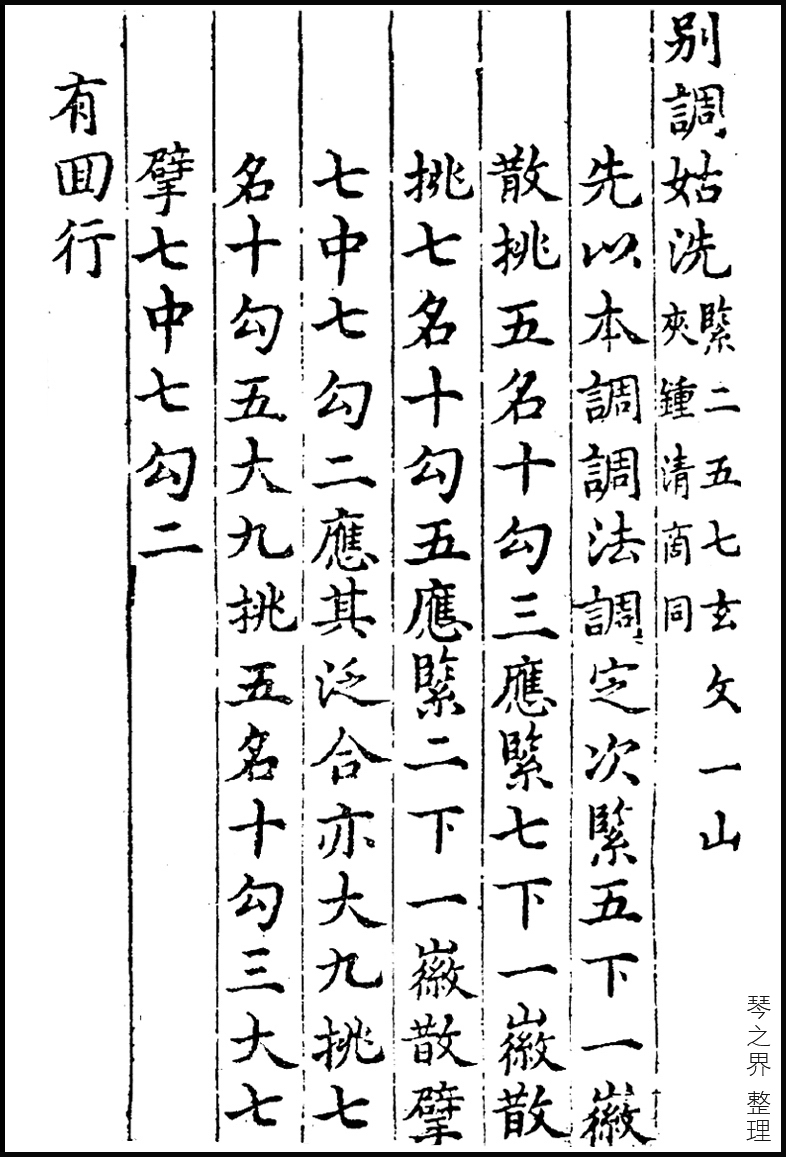 別調姑洗
緊二五七玄文一山
夾鍾清商同
先以本調調法調定次緊五下一徽
散挑五名十勾三應緊七下一徽散
挑七名十勾五應緊二下一徽散擘
七中七勾二應其泛合亦大九挑七
名十勾五大九挑五名十勾三大七
擘七中七勾二
有囬行
琴之界 整理